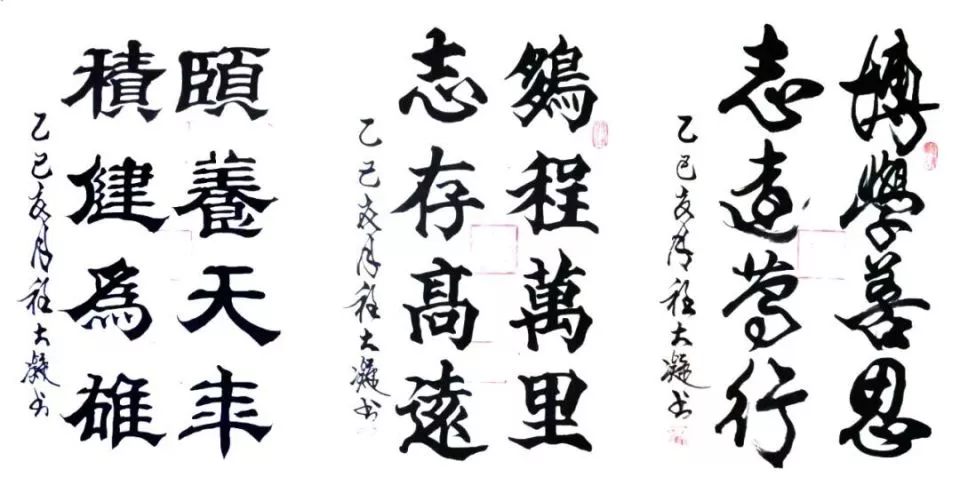 頤養天年
積健為雄
乙巳亥月程大凝书
鵬程萬里
志存髙遠
乙巳亥月程大凝书
博學善思
志遠篤行
乙巳亥月程大凝书